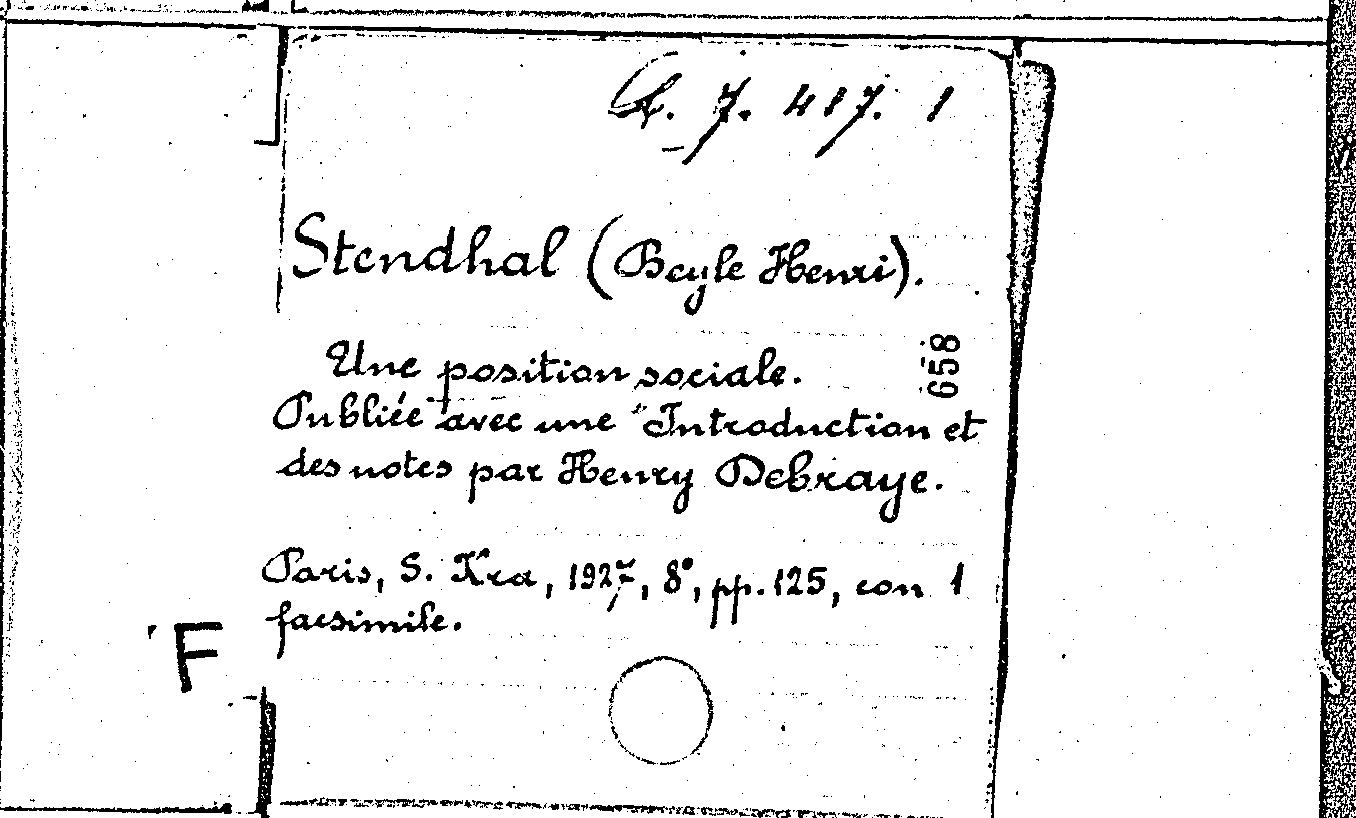 7. 417. 1
Stendhal (Beyle Henri).
658
Une position sociale.
Publiée avec une "Introduction et
des notes par Henry Debraye.
Paris, S. Kra, 1927, 8°, pp. 125, con 1
facsimile.
F